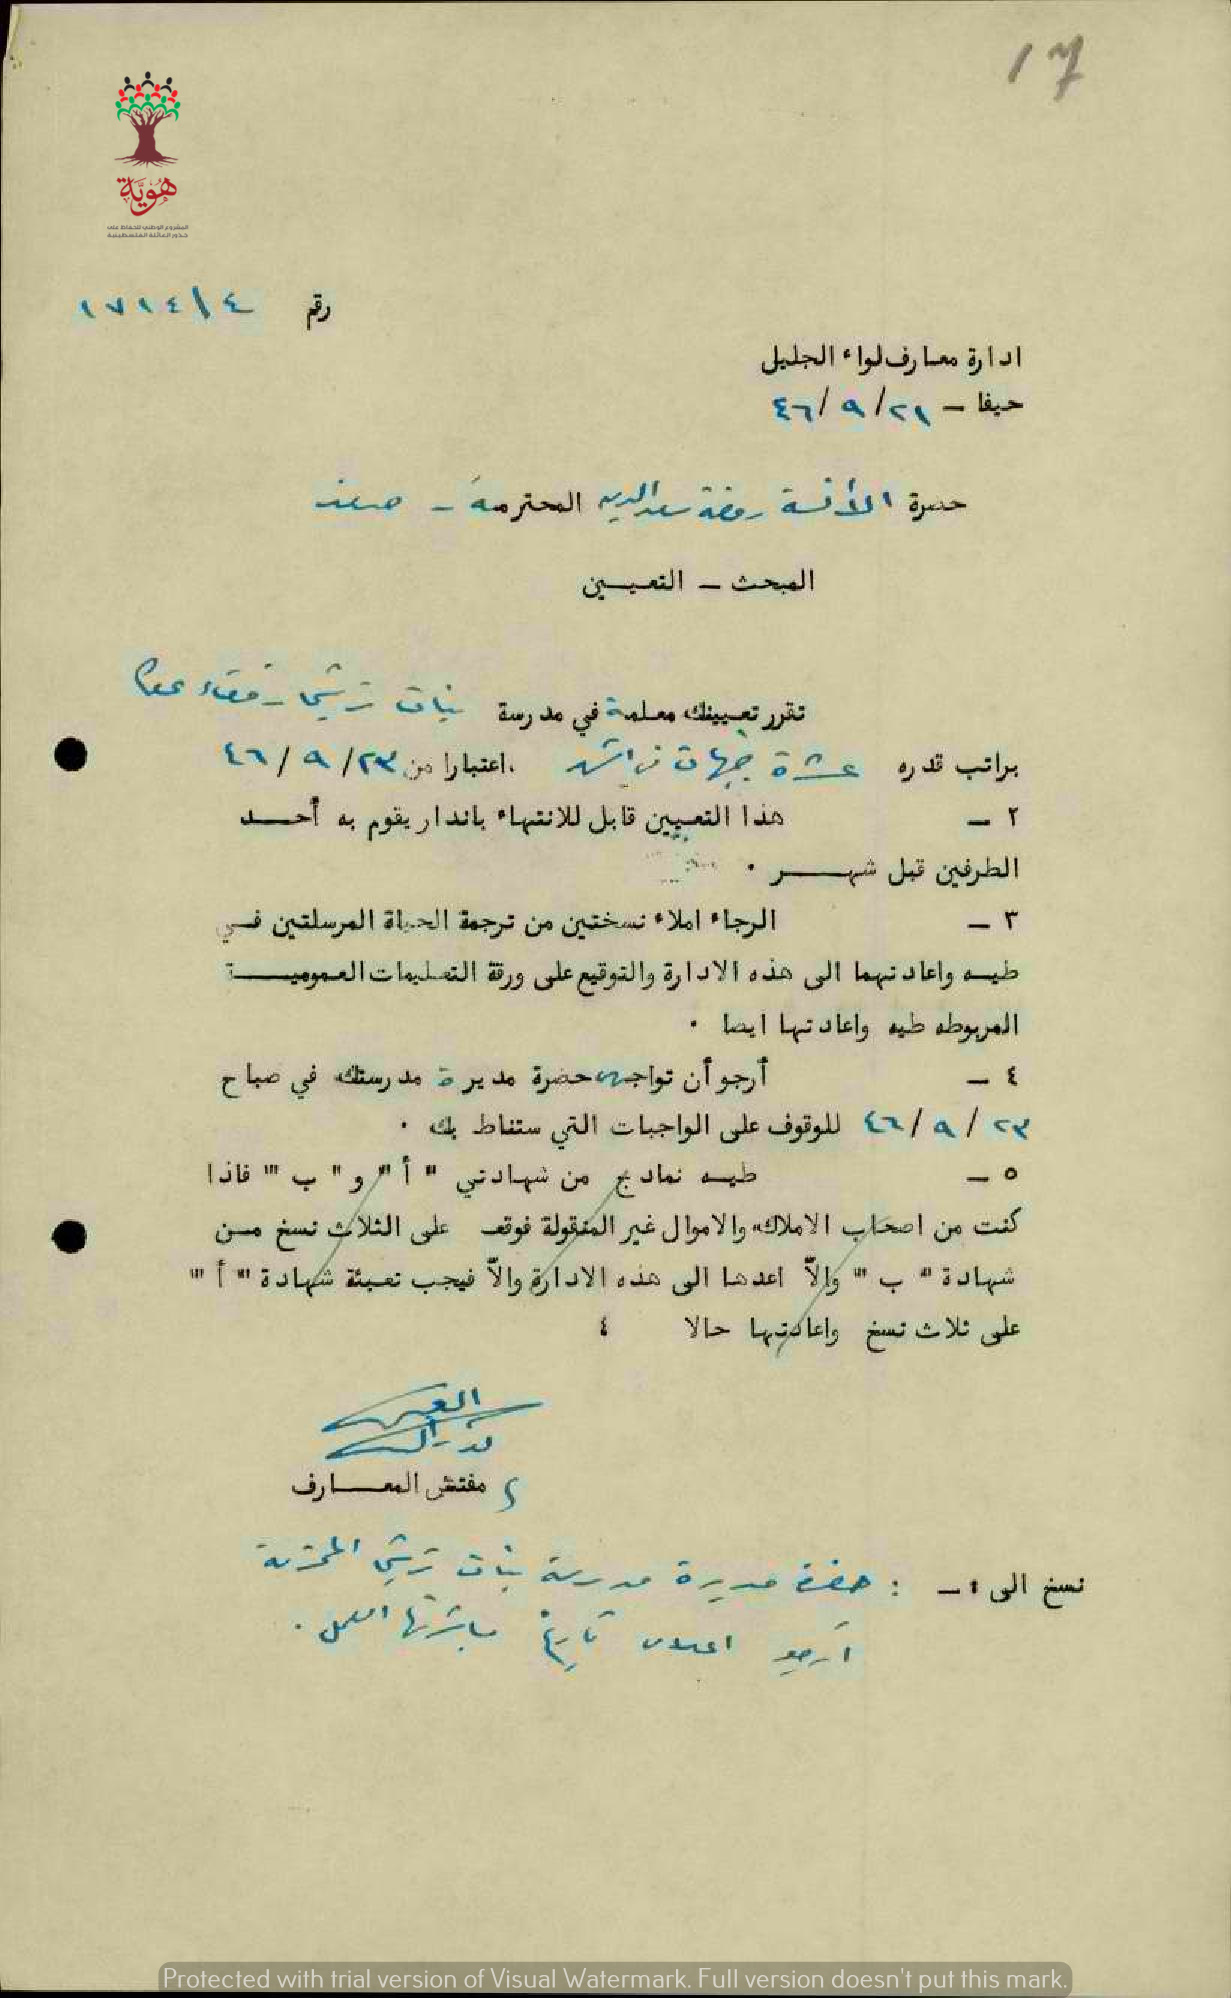 ١٧
هُوِيَّة
المشروع الوطني للحفاظ على
جذور العائلة الفلسطينية
رقم ١٧١٤/٤
ادارة معارف لواء الجليل
حيفا – ٢١/ ٩/ ٤٦
حضرة الآنسة روضة سعد الدين المحترمة – صفد
المبحث – التعيــين
تقرر تعيينك معلمة في مدرسة بنات ترشيحا قضاء عكا
براتب قدره عشرة جنيهات فلسطينية ،اعتبارا من ٢٣/ ٩/ ٤٦
٢ – هذا التعيين قابل للانتهاء باندار يقوم به أحــد
الطرفين قبل شهــر .
٣ – الرجاء املاء نسختين من ترجمة الحياة المرسلتين فــي
طيــه واعادتهما الى هذه الادارة والتوقيع على ورقة التعليمات العموميــة
المربوطه طيه واعادتها ايضا .
٤ – أرجو أن تواجهي حضرة مديرة مدرستك في صباح
٢٣/ ٩/ ٤٦ للوقوف على الواجبات التي ستناط بك .
٥ – طيــه نماذج من شهادتي " أ " و " ب " فاذا
كنت من اصحاب الاملاك والاموال غير المنقولة فوقع على الثلاث نسخ مــن
شهادة " ب " والاّ اعدها الى هذه الادارة والاّ فيجب تعبئة شهادة " أ "
على ثلاث نسخ واعادتها حالا ٤
مفتش المعــارف
نسخ الى :– : حضرة مديرة مدرسة بنات ترشيحا المحترمة
أرجو اعلامي تاريخ مباشرتها العمل .
Protected with trial version of Visual Watermark. Full version doesn't put this mark.